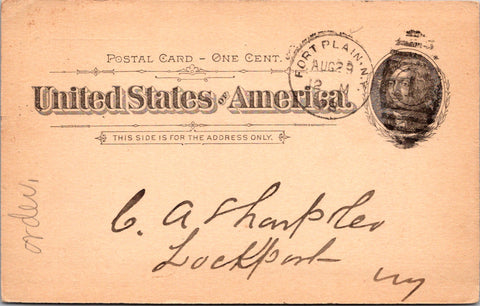 POSTAL CARD - ONE CENT.
FORT PLAIN. N.Y.
AUG 29
12 M
United States of America.
THIS SIDE IS FOR THE ADDRESS ONLY.
C. A Sharp & Co
Lockport
NY
order,